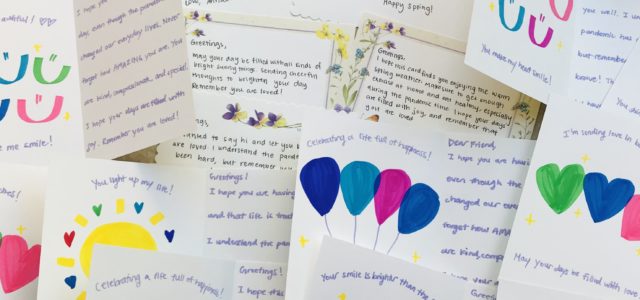 Love,
Happy Spring!
I hope you
day, even though the pandemic
changed our everyday lives. Never
forget how AMAZING you are. You
are kind, compassionate, and special.
I hope your days are filled with
joy. Remember you are loved!
beautiful!
me smile!
Greetings,
May your day be filled with all kinds of
bright sunny things. Sending cheerful
thoughts to brighten your day.
Remember you are loved!
Greetings,
I hope this card finds you enjoying the warm
spring weather. Make sure to get enough
exercise at home and eat healthy, especially
during the Pandemic time. I hope your days
are filled with joy, and remember that
you are loved
ings,
wanted to say hi and let you know
are loved. I understand the pandemic
been hard, but remember
You make my heart smile!
you well. I
pandemic has
but remember
brave! Th
You light up my life!
Greetings!
I hope you are having
and that life is
I understand the pan
Celebrating a life full of happiness!
Dear Friend,
I hope you are hav
even though the
changed our ever
forget how AMA
are kind, comp
I hope your da
I'm sending love in
May your days be filled with love
Celebrating a life full of happiness!
Greetings!
I hope this
Your smile is brighter than the
Greeting